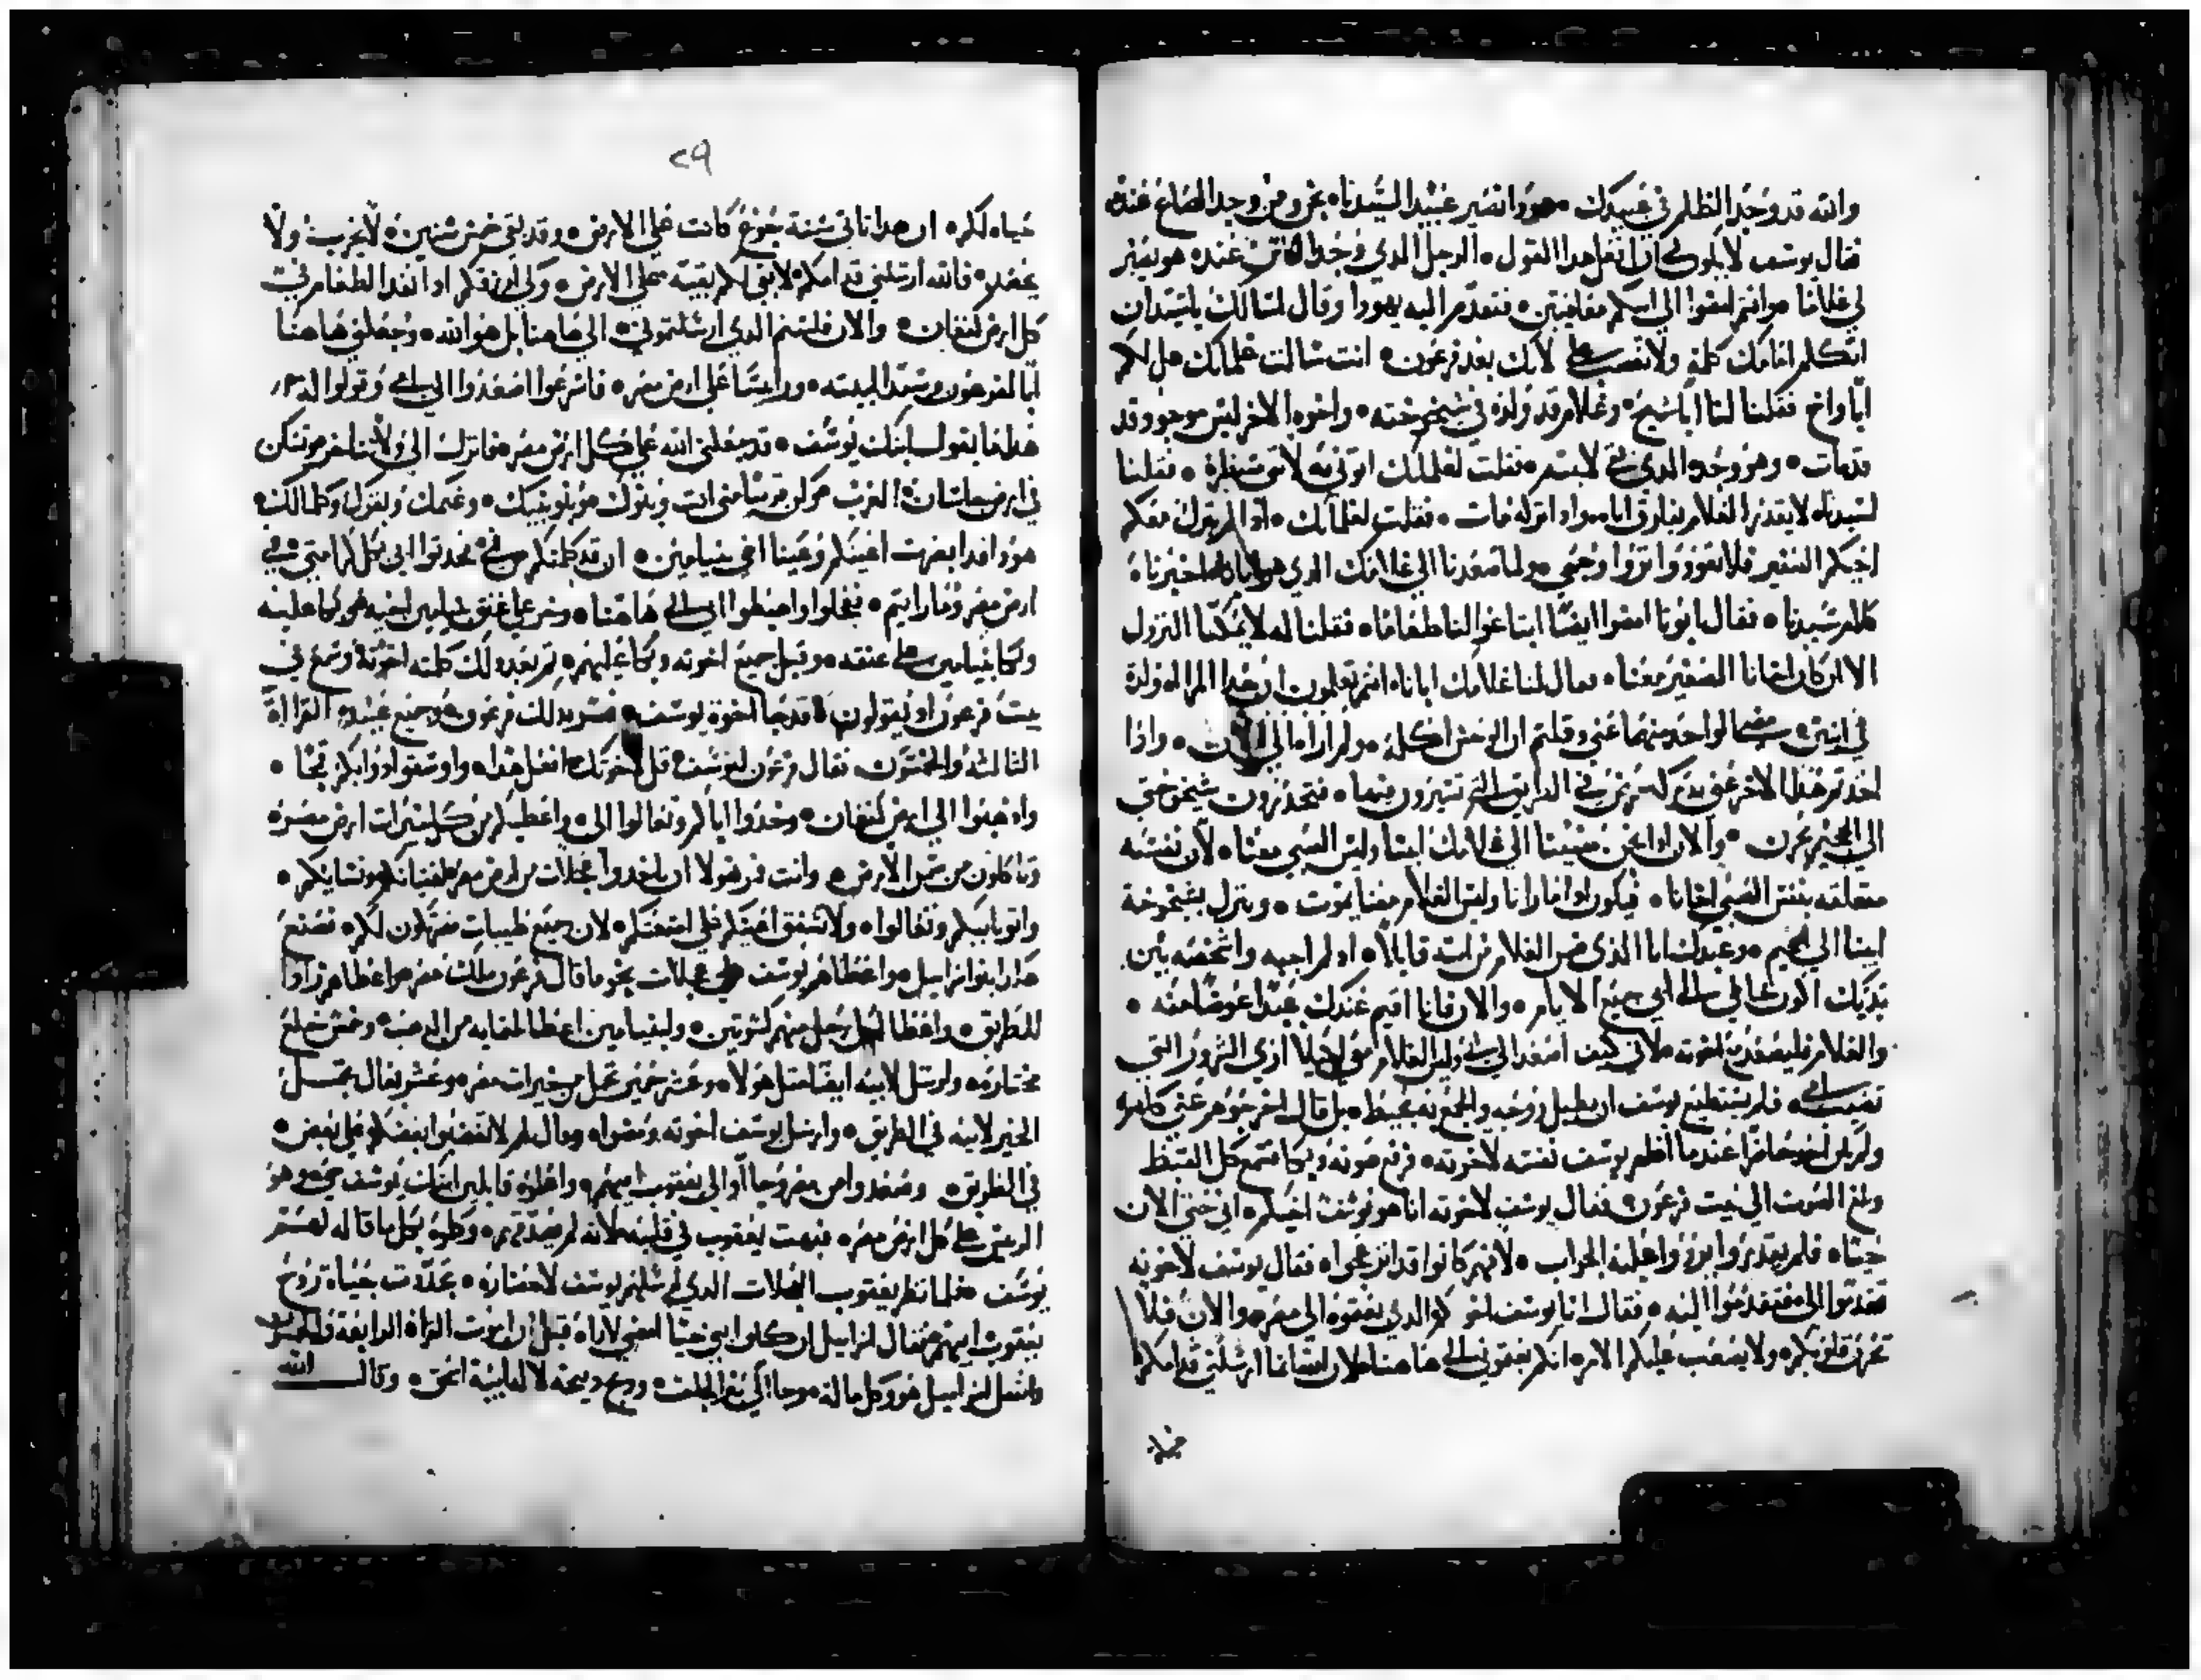 والله قد وجد الظلم في عبيدك هودا نصير عبيد السيدنا نحن ومن وجد الصاع عنده
فقال يوسف لا يكون لي ان افعل هدا القول الرجل الدي وجد الكاس عنده هو يصير
لي غلاما وانتم اصعدوا الي ابيكم معافيين فتقدم اليه يهودا وقال اسالك يا سيد ان
اتكلم امامك كلمة ولا تغضب علي لانك بعد فرعون انت سالت غلمانك هل لكم
ابا واخ فقلنا لنا ابا شيخ وغلام قد ولد في شيخوخته واخوه الاخر ليس موجود قد
مات وهو وحده الدي بقي لابيه فقلت لغلمانك اتوني به لاتي منظرة فقلنا
لسيدنا لا يقدر الغلام يفارق اباه وادا تركه مات فقلت لغلمانك ادا لم ينزل معكم
اخيكم الصغير فلا تعودوا تروا وجهي ولما صعدنا الي غلامك الدي هو ابانا اخبرناه
كلام سيدنا فقال ابونا امضوا ايضا ابتاعوا لنا طعاما فقلنا له لا يمكننا النزول
الا ان كان اخانا الصغير معنا فقال لنا غلامك ابانا انتم تعلمون ان هدا المراه ولدة
لي اتنين مضي الواحد منهما عني وقلتم ان الوحش اكله ولم اراه الي الان وادا
اخدتم هدا الاخر عرض في الطريق التي تسيرون فيها فتحدرون شيخوختي
الي الجحيم بحزن والان ادا نحن مضينا الي غلامك ابينا وليس الصبي معنا لان نفسه
متعلقه بنفس الصبي اخانا فيكون ادا ما رانا وليس الغلام معنا يموت وينزل بشيخوخة
ابينا الي الجحيم وعبدك انا الدي ضمن الغلام من ابيه قايلا ادا لم اجيبه واشخصه بين
يديك اكون خاطي الي ابي جميع الايام والان فانا اقيم عندك عبدا عوضا منه
والغلام فليصعد مع اخوته لاني كيف اصعد الي ابي وليس الغلام معي ليلا اري الشرور التي
تصيب ابي فلم يستطيع يوسف ان يطيل روحه والجمع به محيط بل قال اخرجوهم عني كلهم
ولم يكن احد حاضرا عندما اظهر يوسف نفسه لاخوته فرفع صوته وبكا فسمع كل القبط
وبلغ الصوت الي بيت فرعون فقال يوسف لاخوته انا هو يوسف اخيكم ابي حي الان
حيا فلم يقدروا يردوا عليه الجواب لانهم كانوا قد انزعجوا فقال يوسف لاخوته
تقدموا الي فتقدموا اليه فقال انا يوسف اخوكم الدي بعتموه الي مصر والان فلا
تحزن قلوبكم ولا يصعب عليكم الامر انكم بعتموني الي هاهنا لان الله انما ارسلني قدامكم
حياه
٢٩
حياه لكم ان هدا تاني سنة جوع كانت علي الارض وقد بقي خمس سنين لا يحرث ولا
يحصد فالله ارسلني قدامكم لابقي لكم بقيته علي الارض
كل ارض كنعان والان فلستم الدي ارسلتموني الي هاهنا بل هو الله وجعلني هاهنا
ابا لفرعون وسيدا لبيته ورايسا علي ارض مصر فاسرعوا اصعدوا الي ابي وقولوا له
هدا ما يقول ابنك يوسف قد جعلني الله علي كل ارض مصر فانزل الي ولا تتاخر وتسكن
في ارض جاسان العرب وتكون قريبا مني انت وبنوك وبنو بنيك وغنمك وبقرك وكلما لك
هودا قدا بصرت اعينكم وعينا اخي بنيامين ان قد كلمتكم
ارض مصر وما رايتم فعجلوا واهبطوا ابي الي هاهنا وخر علي عنق بنيامين اخيه وبكا عليه
وبكا بنيامين علي عنقه وقبل جميع اخوته وبكا عليهم ثم بعد دلك كلمته اخوته وسمع في
بيت فرعون اد يقولون قد جا اخوة يوسف فسر بدلك فرعون وجميع عبيده القراة
الثالثه والخمسون فقال فرعون ليوسف قل لاخوتك افعلوا هدا واوسقوا دوابكم قمحا
وادهبوا الي ارض كنعان وخدوا اباكم وتعالوا الي واعطيكم من كل خيرات ارض مصر
وتاكلون من سمن الارض وانت فمر هولا ان ياخدوا عجلات من ارض مصر لصبيانكم ونسايكم
واتوا بابيكم وتعالوا ولا تشفق اعينكم علي امتعتكم لان جميع طيبات مصر تكون لكم فصنع
هكدا بنوا اسراييل واعطاهم يوسف عجلات نحو ما قال فرعون ملك مصر واعطاهم زوادا
للطريق واعطا لكل رجل منهم كسوتين ولبنيامين اعطا تلتمايه من الدهب وخمس خلع
مختاره وارسل لابيه ايضا مثل هولا وعشر حمير تحمل من خيرات مصر وعشر بغال تحمل
الخبز لابيه في الطريق وارسل يوسف اخوته ومضوا وقال لهم لا تغضبوا بعضكم علي بعض
في الطريق وصعدوا من مصر وجاوا الي يعقوب ابيهم واعلموه قايلين ابنك يوسف حي وهو
الريس علي كل ارض مصر فبهت يعقوب في قلبه لانه لم يصدقهم وكلموه بكل ما قاله لهم
يوسف فلما نظر يعقوب العجلات الدي ارسلهم يوسف لاحضاره تجددت حياة روح
يعقوب ابيهم فقال اسراييل ان كان ابني حيا امضي لاراه قبل ان اموت القراه الرابعة والخمسون
وانتقل اسراييل هو وكل ما له وجا الي بير الحلف ودبح دبيحة لالاه ابيه اسحق وقال الله